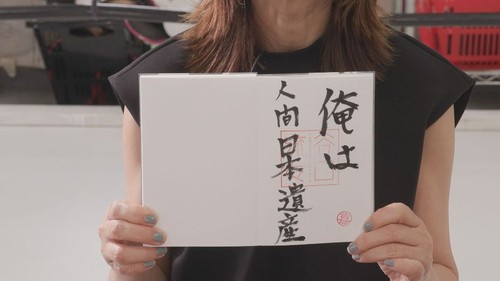 俺は
人間日本遺産